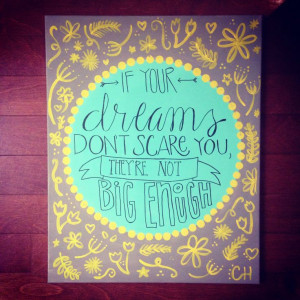 IF YOUR
dreams
DON'T SCARE YOU,
THEY'RE NOT
BIG ENOUGH
CH